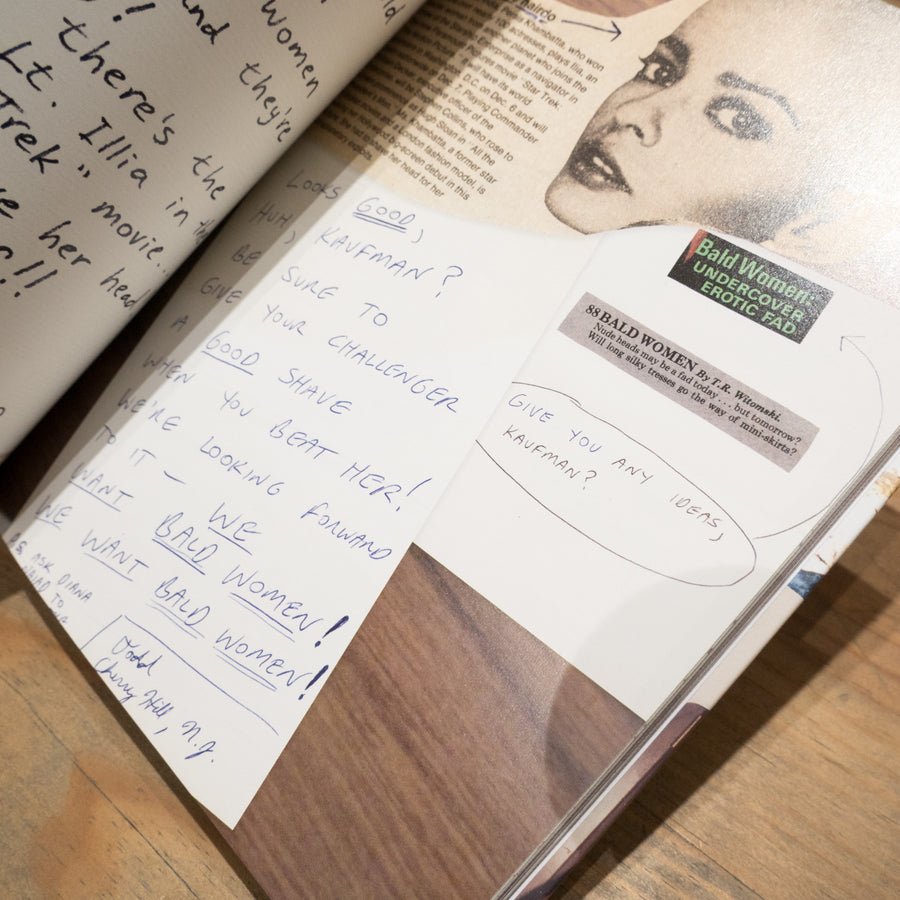 Women
and they're
!
there's the
Lt. Illia in
Trek" movie..
her head
!!
hairdo
Khambatta, who won
100 actresses, plays Ilia, an
other planet who joins the
Enterprise as a navigator in
Pictures movie "Star Trek:
will have its world
D.C. on Dec. 6 and will
7. Playing Commander
officer of the
Collins, who rose to
Hugh Sloan in "All the
Khambatta, a former star
London fashion model, is
big-screen debut in this
her head for her
LOOKS GOOD,
HUH, KAUFMAN?
BE SURE TO
GIVE YOUR CHALLENGER
A GOOD SHAVE
WHEN YOU BEAT HER!
WE'RE LOOKING FORWARD
TO IT — WE
WANT BALD WOMEN!
WE WANT BALD WOMEN!
P.S. ASK DIANA
TO
Todd
Cherry Hill, N.J.
Bald Women:
UNDERCOVER
EROTIC FAD
88 BALD WOMEN By T.R. Witomski.
Nude heads may be a fad today . . . but tomorrow?
Will long silky tresses go the way of mini-skirts?
GIVE YOU ANY IDEAS,
KAUFMAN?